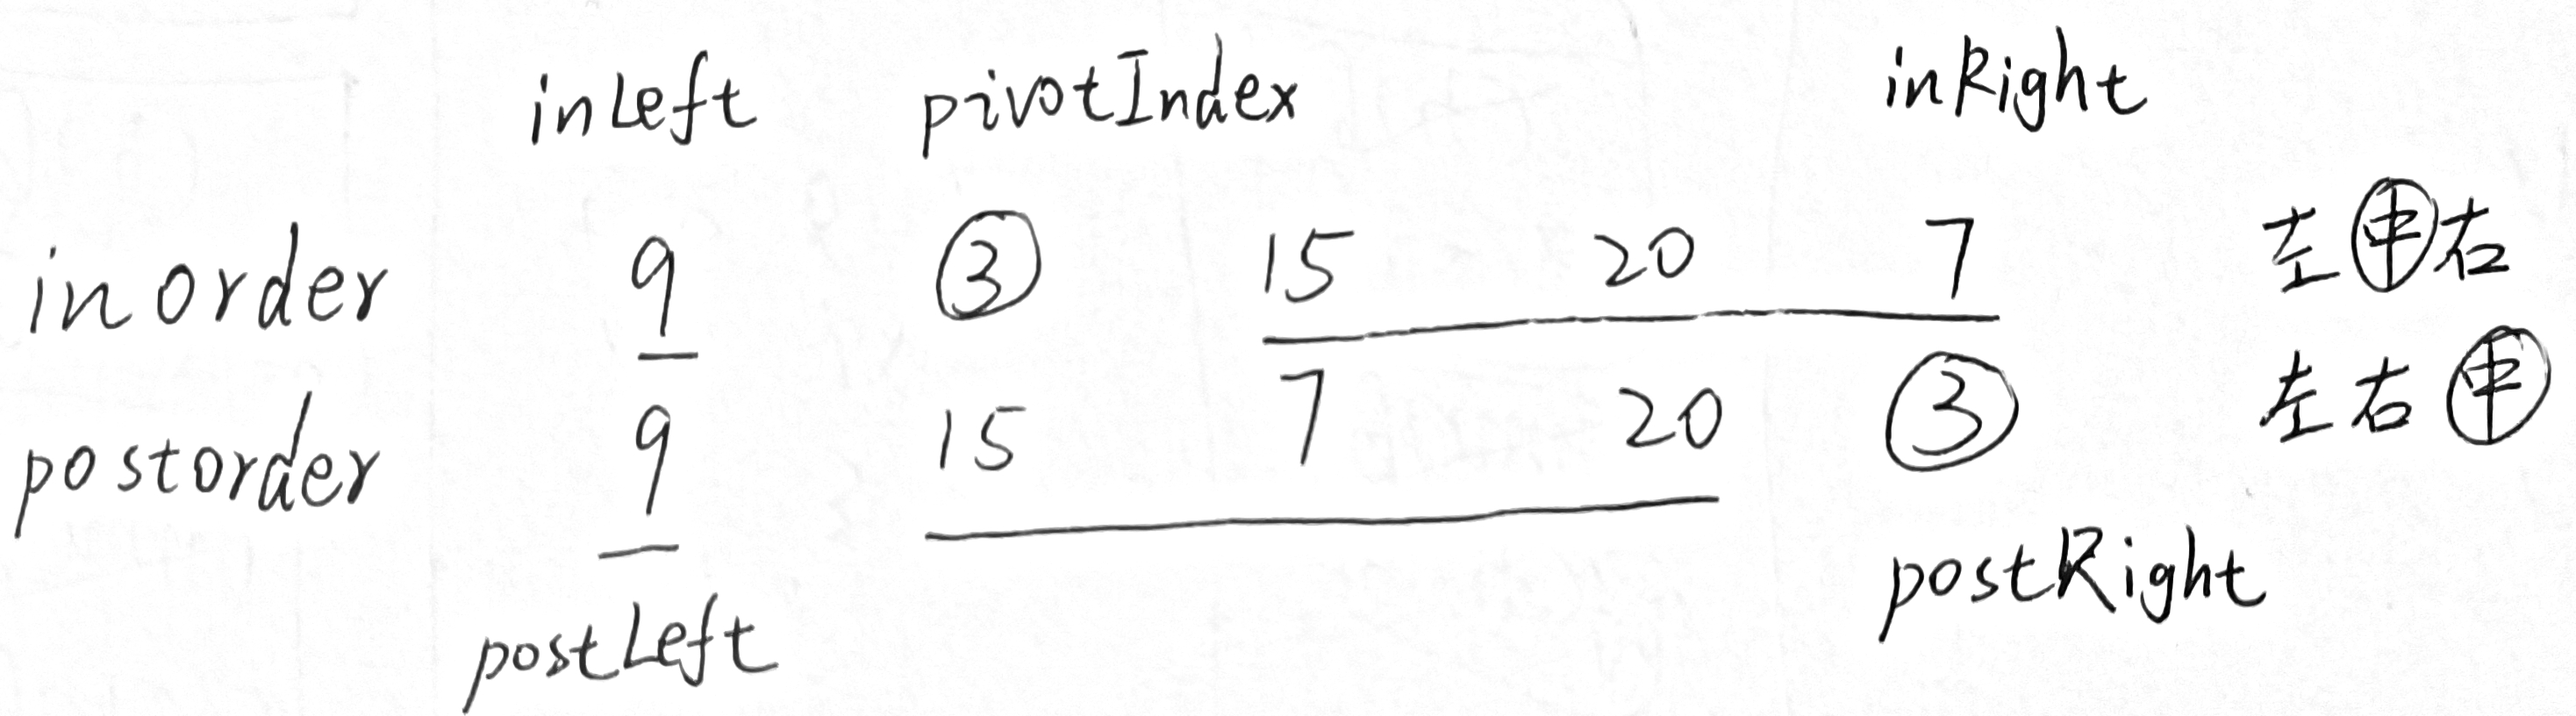 inLeft pivotIndex inRight
inorder 9 3 15 20 7 左中右
postorder 9 15 7 20 3 左右中
postLeft postRight